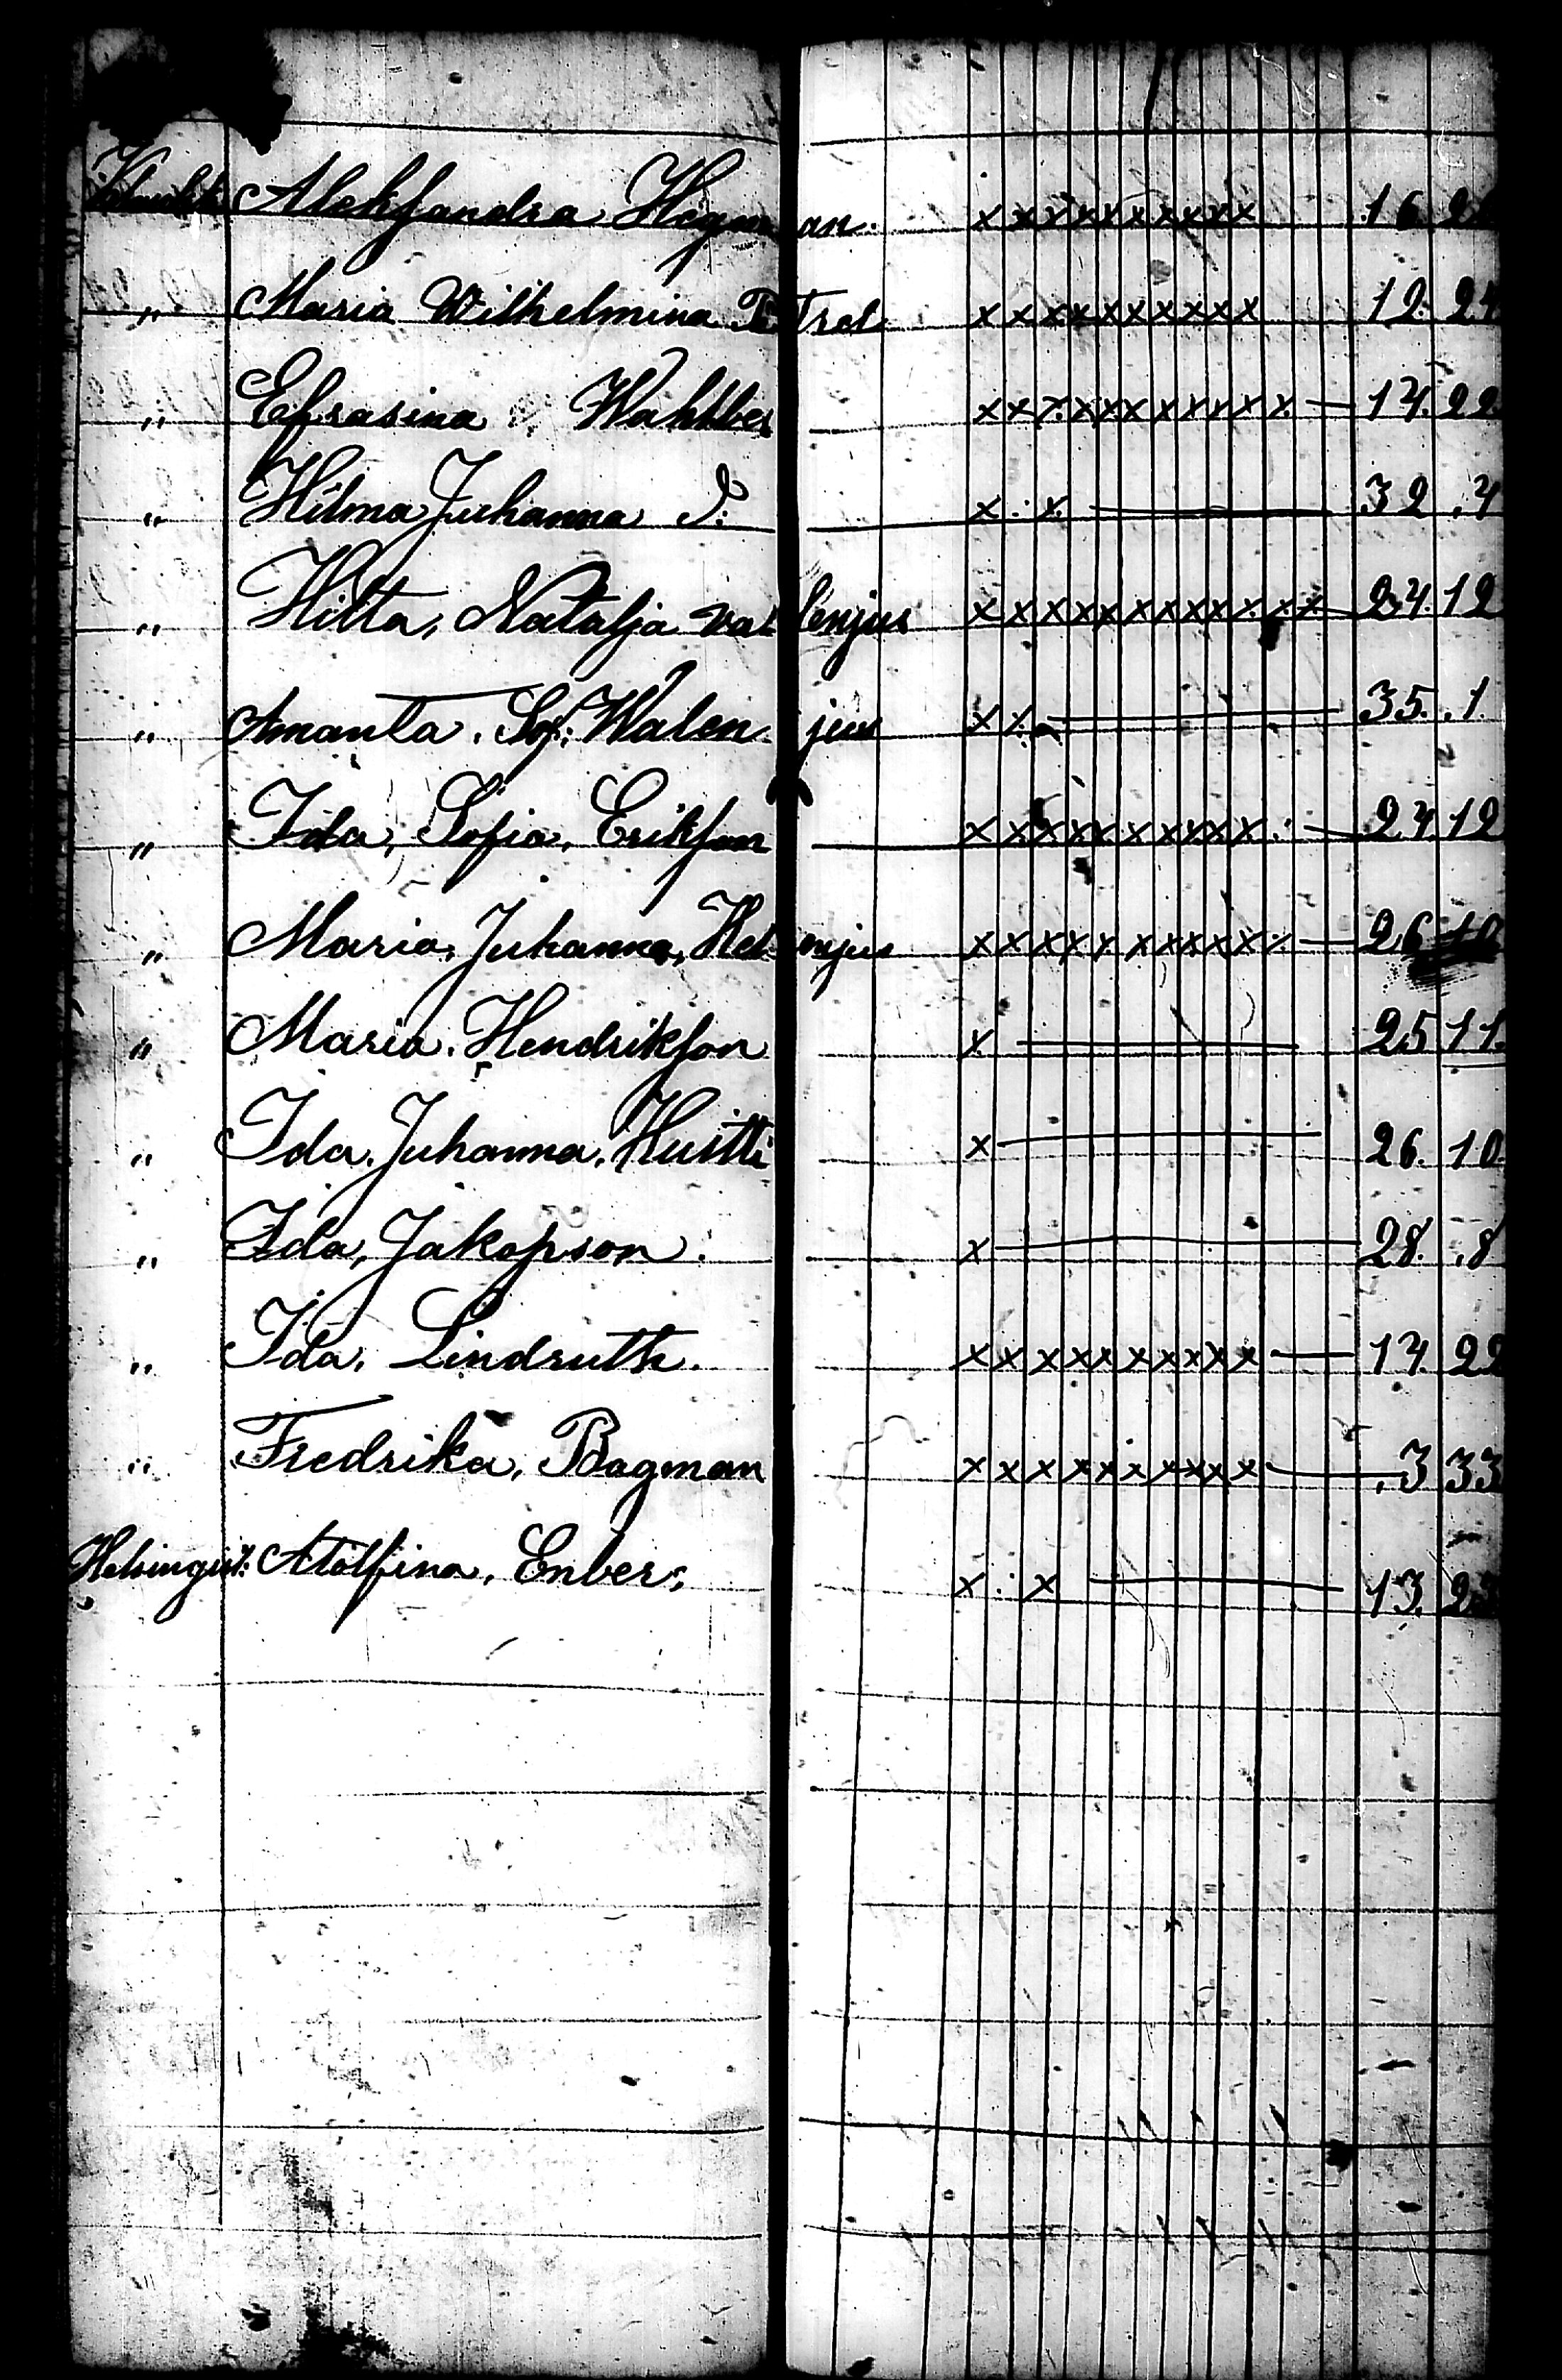 Aleksandra Hegman. x x x x x x x x x x 16
" Maria Wilhelmina x x x x x x x x x x 12. 24
" Efrasina Wahlber x x x x x x x x x x x — 14. 22
" Hilma Juhanna x . x — 32 . 4
" Hilta, Natalja valenjus x x x x x x x x x x x x 24. 12
" Amanta. Sof: Walenjus x x — 35. . 1.
" Ida, Sofia, Erikson x x x x x x x x x x — 24 12
" Maria, Juhanna, x x x x x x x x x x x — 26
" Maria. Hendrikson x — 25 11.
" Ida. Juhanna. Huitti x — 26. 10.
" Ida, Jakopson. x — 28. . 8
" Ida, Lindruth. x x x x x x x x x x — 14. 22
" Fredrika, Bagman x x x x x x x x x x — . 3 33
Atolfina, Enber; x . x — 13. 23